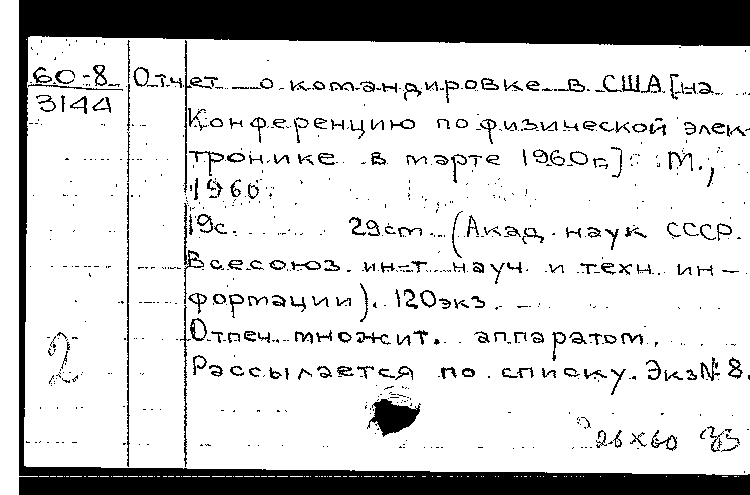 60-8 Отчет о командировке в США [на
3144
Конференцию по физической элек-
тронике в марте 1960г.] М.,
1960.
19с. 29см (Акад. наук СССР.
Всесоюз. ин-т науч. и техн. ин-
формации). 120экз.
Отпеч. множит. аппаратом.
2 Рассылается по списку. Экз№ 8.
26х60